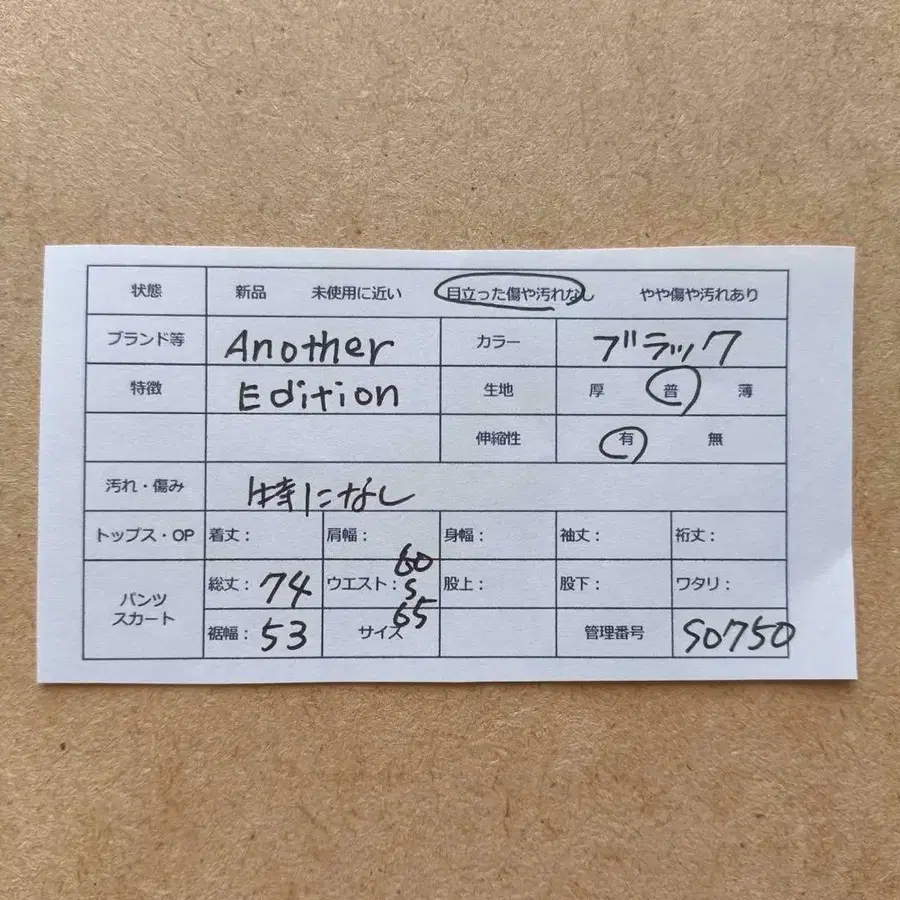 状態 新品 未使用に近い 目立った傷や汚れなし やや傷や汚れあり
ブランド等 Another カラー ブラック
特徴 Edition 生地 厚 普 薄
伸縮性 有 無
汚れ・傷み 特になし
トップス・OP 着丈： 肩幅： 身幅： 袖丈： 裄丈：
パンツ スカート
総丈：74 ウエスト：60 S 65 股上： 股下： ワタリ：
裾幅：53 サイズ 管理番号 S0750